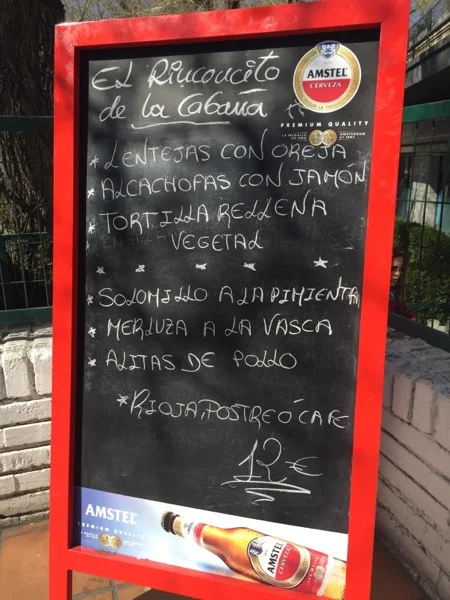 El Rinconcito
de la Cabaña
AMSTEL
CERVEZA
PREMIUM QUALITY
* LENTEJAS CON OREJA
* ALCACHOFAS CON JAMÓN
* TORTILLA RELLENA
VEGETAL
* * * * *
* SOLOMILLO A LA PIMIENTA
* MERLUZA A LA VASCA
* ALITAS DE POLLO
* RIOJA, POSTRE Ó CAFE
12 €
AMSTEL
PREMIUM QUALITY
AMSTEL
CERVEZA